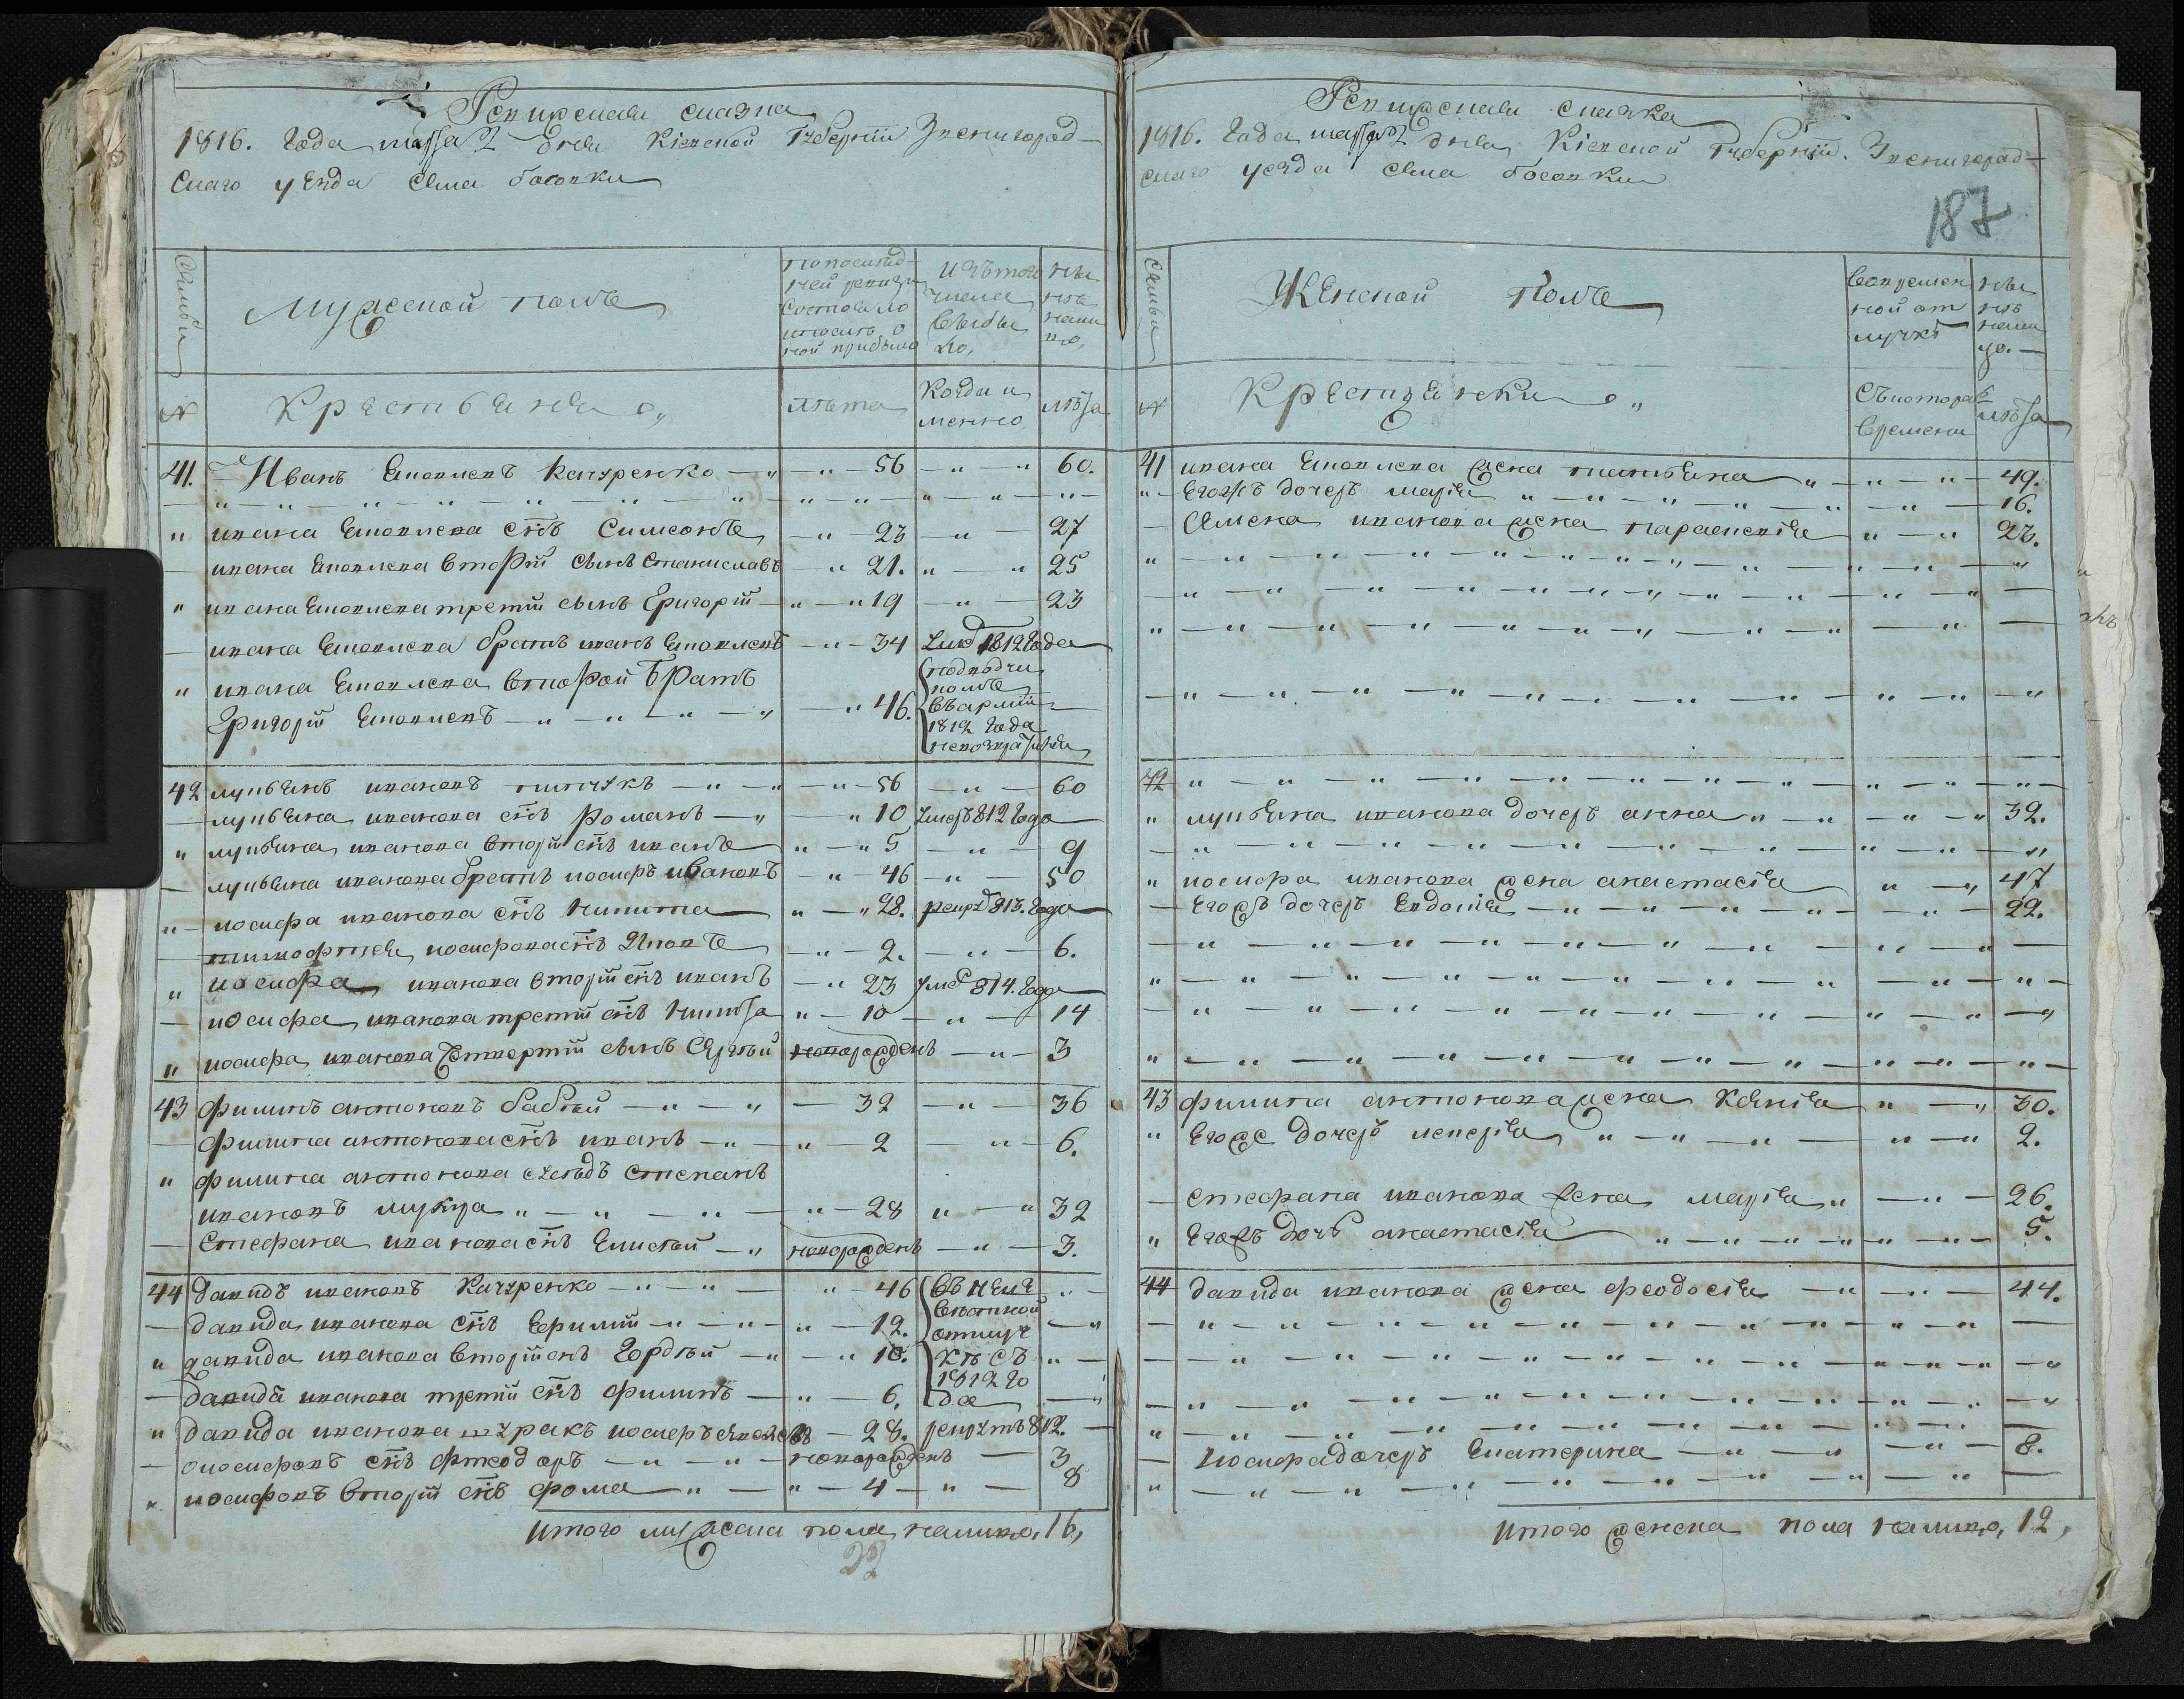 Ревизская сказка
1816. Года марта 2 дня Кіевской Губерніи Звенигород-
скаго уезда села босовки
Семьи
Мужеской полъ
По послед-
ней ревизіи
состояло
и после о
ной прибыло
Изъ того
числа
выбы
ло,
ны
не
нали
цо,
№
Крестьяне
лета
Когда и
менно
лета
41. Иванъ Яковлевъ Качуренко 56 60.
ивана Яковлева сынъ Симеонъ 23 27
ивана Яковлева вторій сынъ Станиславъ 21. 25
ивана Яковлева третій сынъ Григорій 19 23
ивана Яковлева братъ иванъ Яковлевъ 34 умер 1812 Года
ивана Яковлева второй Братъ
Григорій Яковлевъ 46.
въ арміи
1812 Года
42 лукьянъ ивановъ 56 60
лукьяна иванова сынъ романъ 10 умеръ 812 Года
лукьяна иванова вторій сынъ иванъ 5 9
лукьяна иванова братъ иосифъ ивановъ 46 50
иосифа иванова сынъ Никита 28. рекрт 813. Года
иосифова сынъ Яковъ 2. 6.
иосифа иванова вторій сынъ иванъ 23 умер 814. Года
иосифа иванова третій сынъ Никита 10 14
иосифа иванова Четвертій сынъ Сергей новорожденъ 3
43 филипъ антоновъ бабій 32 36
филипа антонова сынъ иванъ 2 6.
филипа антонова суседъ степанъ
ивановъ 28 32
Стефана иванова сынъ Елисей новорожденъ 3.
44 давидъ ивановъ Качуренко 46
давида иванова сынъ Ефимій 12.
давида иванова вторій сынъ Гордей 10.
давида иванова третій сынъ филипъ 6,
въ неиз
вестной
отлуч
ке съ
1812 го
да
давида иванова иосифъ 28. рекрутъ 812.
иосифовъ сынъ феодоръ новорожденъ 3
иосифовъ вторій сынъ фома 4 8
итого мужеска пола налицо, 16,
22
Ревизская сказка
1816. Года марта 2 дня Кіевской Губерніи. Звенигород-
скаго уезда села босовки
187
Семьи
Женской полъ
Во времен
ной от
лучке
ны
не
нали
цо.
№
Крестьянки
Съ котораго
времени
лета
41 ивана Яковлева жена татьяна 49.
Егожъ дочерь марія 16.
Симеона иванова жена параскевія 23.
42
лукьяна иванова дочерь анна 32.
иосифа иванова жена анастасія 47
Егожъ дочерь Евдокія 22.
43 филипа антонова жена Ксенія 30.
Егожъ дочерь 2.
стефана иванова жена марія 26.
Егожъ дочь анастасія 5.
44 давида иванова жена феодосія 44.
иосифа дочерь Екатерина 8.
итого женска пола налицо, 12,